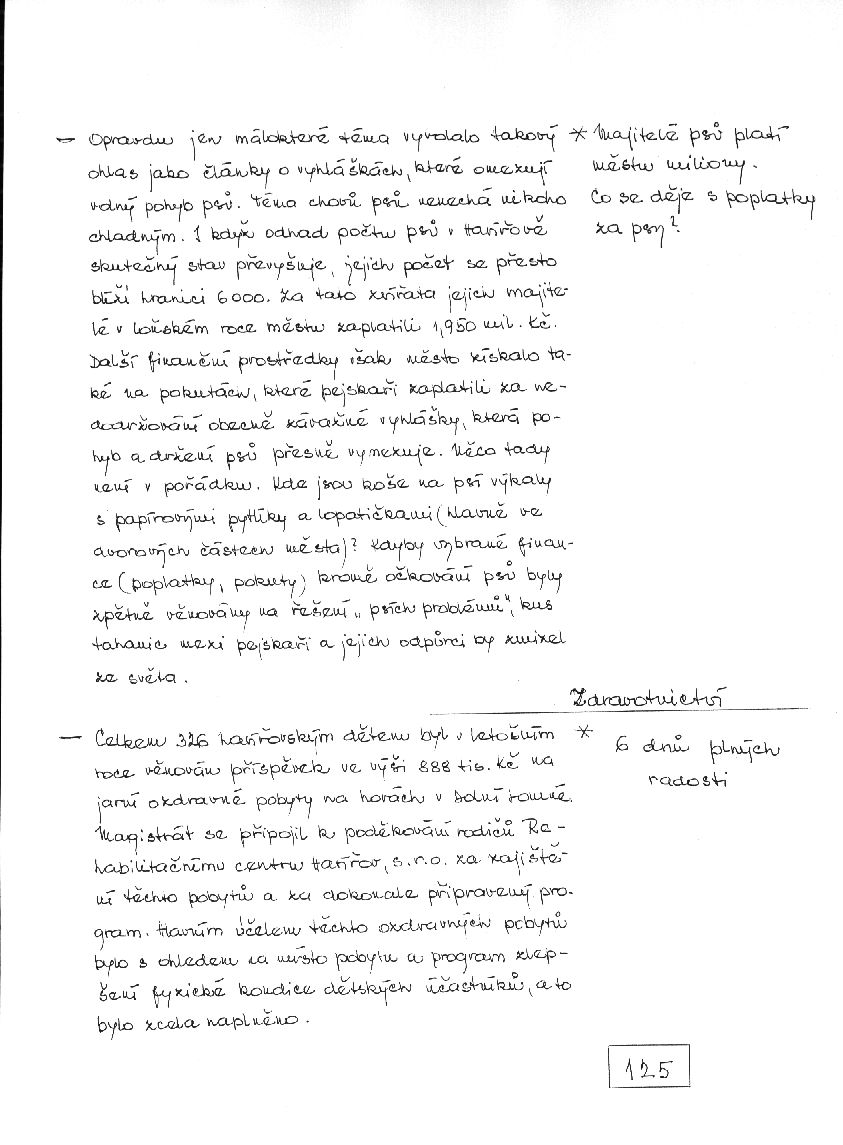 — Opravdu jen málokteré téma vyvolalo takový
ohlas jako články o vyhláškách, které omezují
volný pohyb psů. Téma chovů psů nenechá nikoho
chladným. I když odhad počtu psů v Havířově
skutečný stav převyšuje, jejich počet se přesto
blíží hranici 6000. Za tato zvířata jejich majite-
lé v loňském roce městu zaplatili 1,950 mil. Kč.
Další finanční prostředky však město získalo ta-
ké na pokutách, které pejskaři zaplatili za ne-
dodržování obecně závazné vyhlášky, která po-
hyb a držení psů přesně vymezuje. Něco tady
není v pořádku. Kde jsou koše na psí výkaly
s papírovými pytlíky a lopatičkami (hlavně ve
dvorových částech města)? Kdyby vybrané finan-
ce (poplatky, pokuty) kromě očkování psů byly
zpětně věnovány na řešení „psích problémů", kus
tahanic mezi pejskaři a jejich odpůrci by zmizel
ze světa.
* Majitelé psů platí
městu miliony.
Co se děje s poplatky
za psy?
Zdravotnictví
— Celkem 326 havířovským dětem byl v letošním
roce věnován příspěvek ve výši 888 tis. Kč na
jarní ozdravné pobyty na horách v Dolní Lomné.
Magistrát se připojil k poděkování rodičů Re-
habilitačnímu centru Havířov, s.r.o. za zajiště-
ní těchto pobytů a za dokonale připravený pro-
gram. Hlavním účelem těchto ozdravných pobytů
bylo s ohledem na místo pobytu a program zlep-
šení fyzické kondice dětských účastníků, a to
bylo zcela naplněno.
* 6 dnů plných
radosti
125